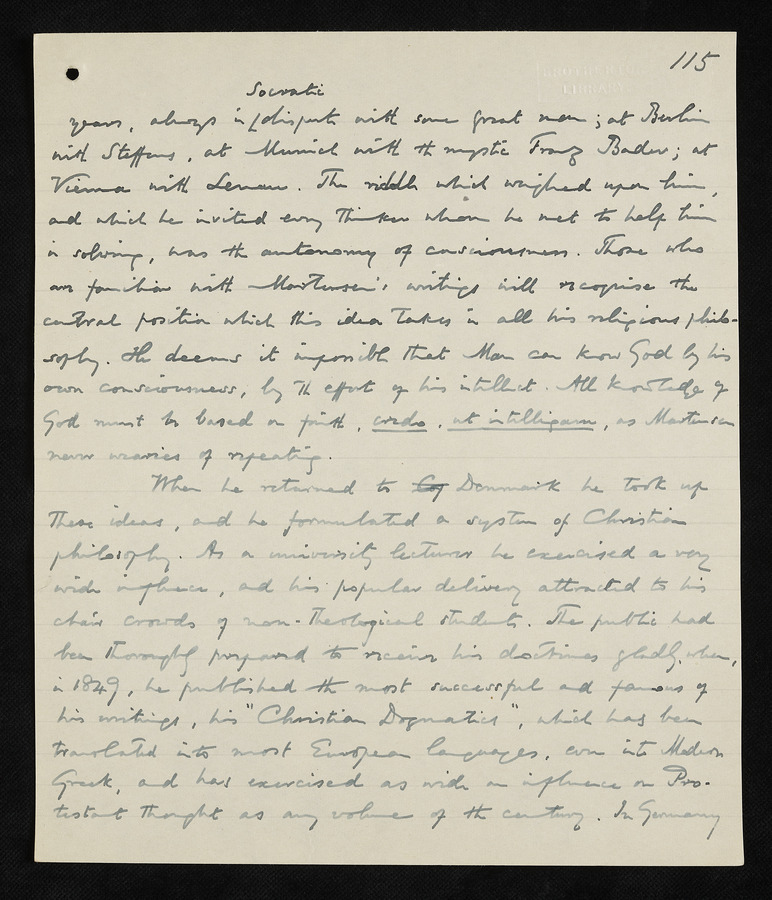 115
BROTHERTON
LIBRARY
Socratic
years, always in dispute with some great man; at Berlin
with Steffens, at Munich with the mystic Franz Bader; at
Vienna with Lenau. The riddle which weighed upon him,
and which he invited every thinker whom he met to help him
in solving, was the autonomy of consciousness. Those who
are familiar with Martensen's writings will recognise the
central position which this idea takes in all his religious philo-
sophy. He deems it impossible that Man can know God by his
own consciousness, by the effort of his intellect. All knowledge of
God must be based on faith, credo, ut intelligam, as Martensen
never wearies of repeating.
When he returned to Cop Denmark he took up
these ideas, and he formulated a system of Christian
philosophy. As a university lecturer he exercised a very
wide influence, and his popular delivery attracted to his
chair crowds of non-theological students. The public had
been thoroughly prepared to receive his doctrines gladly, when,
in 1849, he published the most successful and famous of
his writings, his "Christian Dogmatics", which has been
translated into most European languages, even into Modern
Greek, and has exercised as wide an influence on Pro-
testant thought as any volume of the century. In Germany